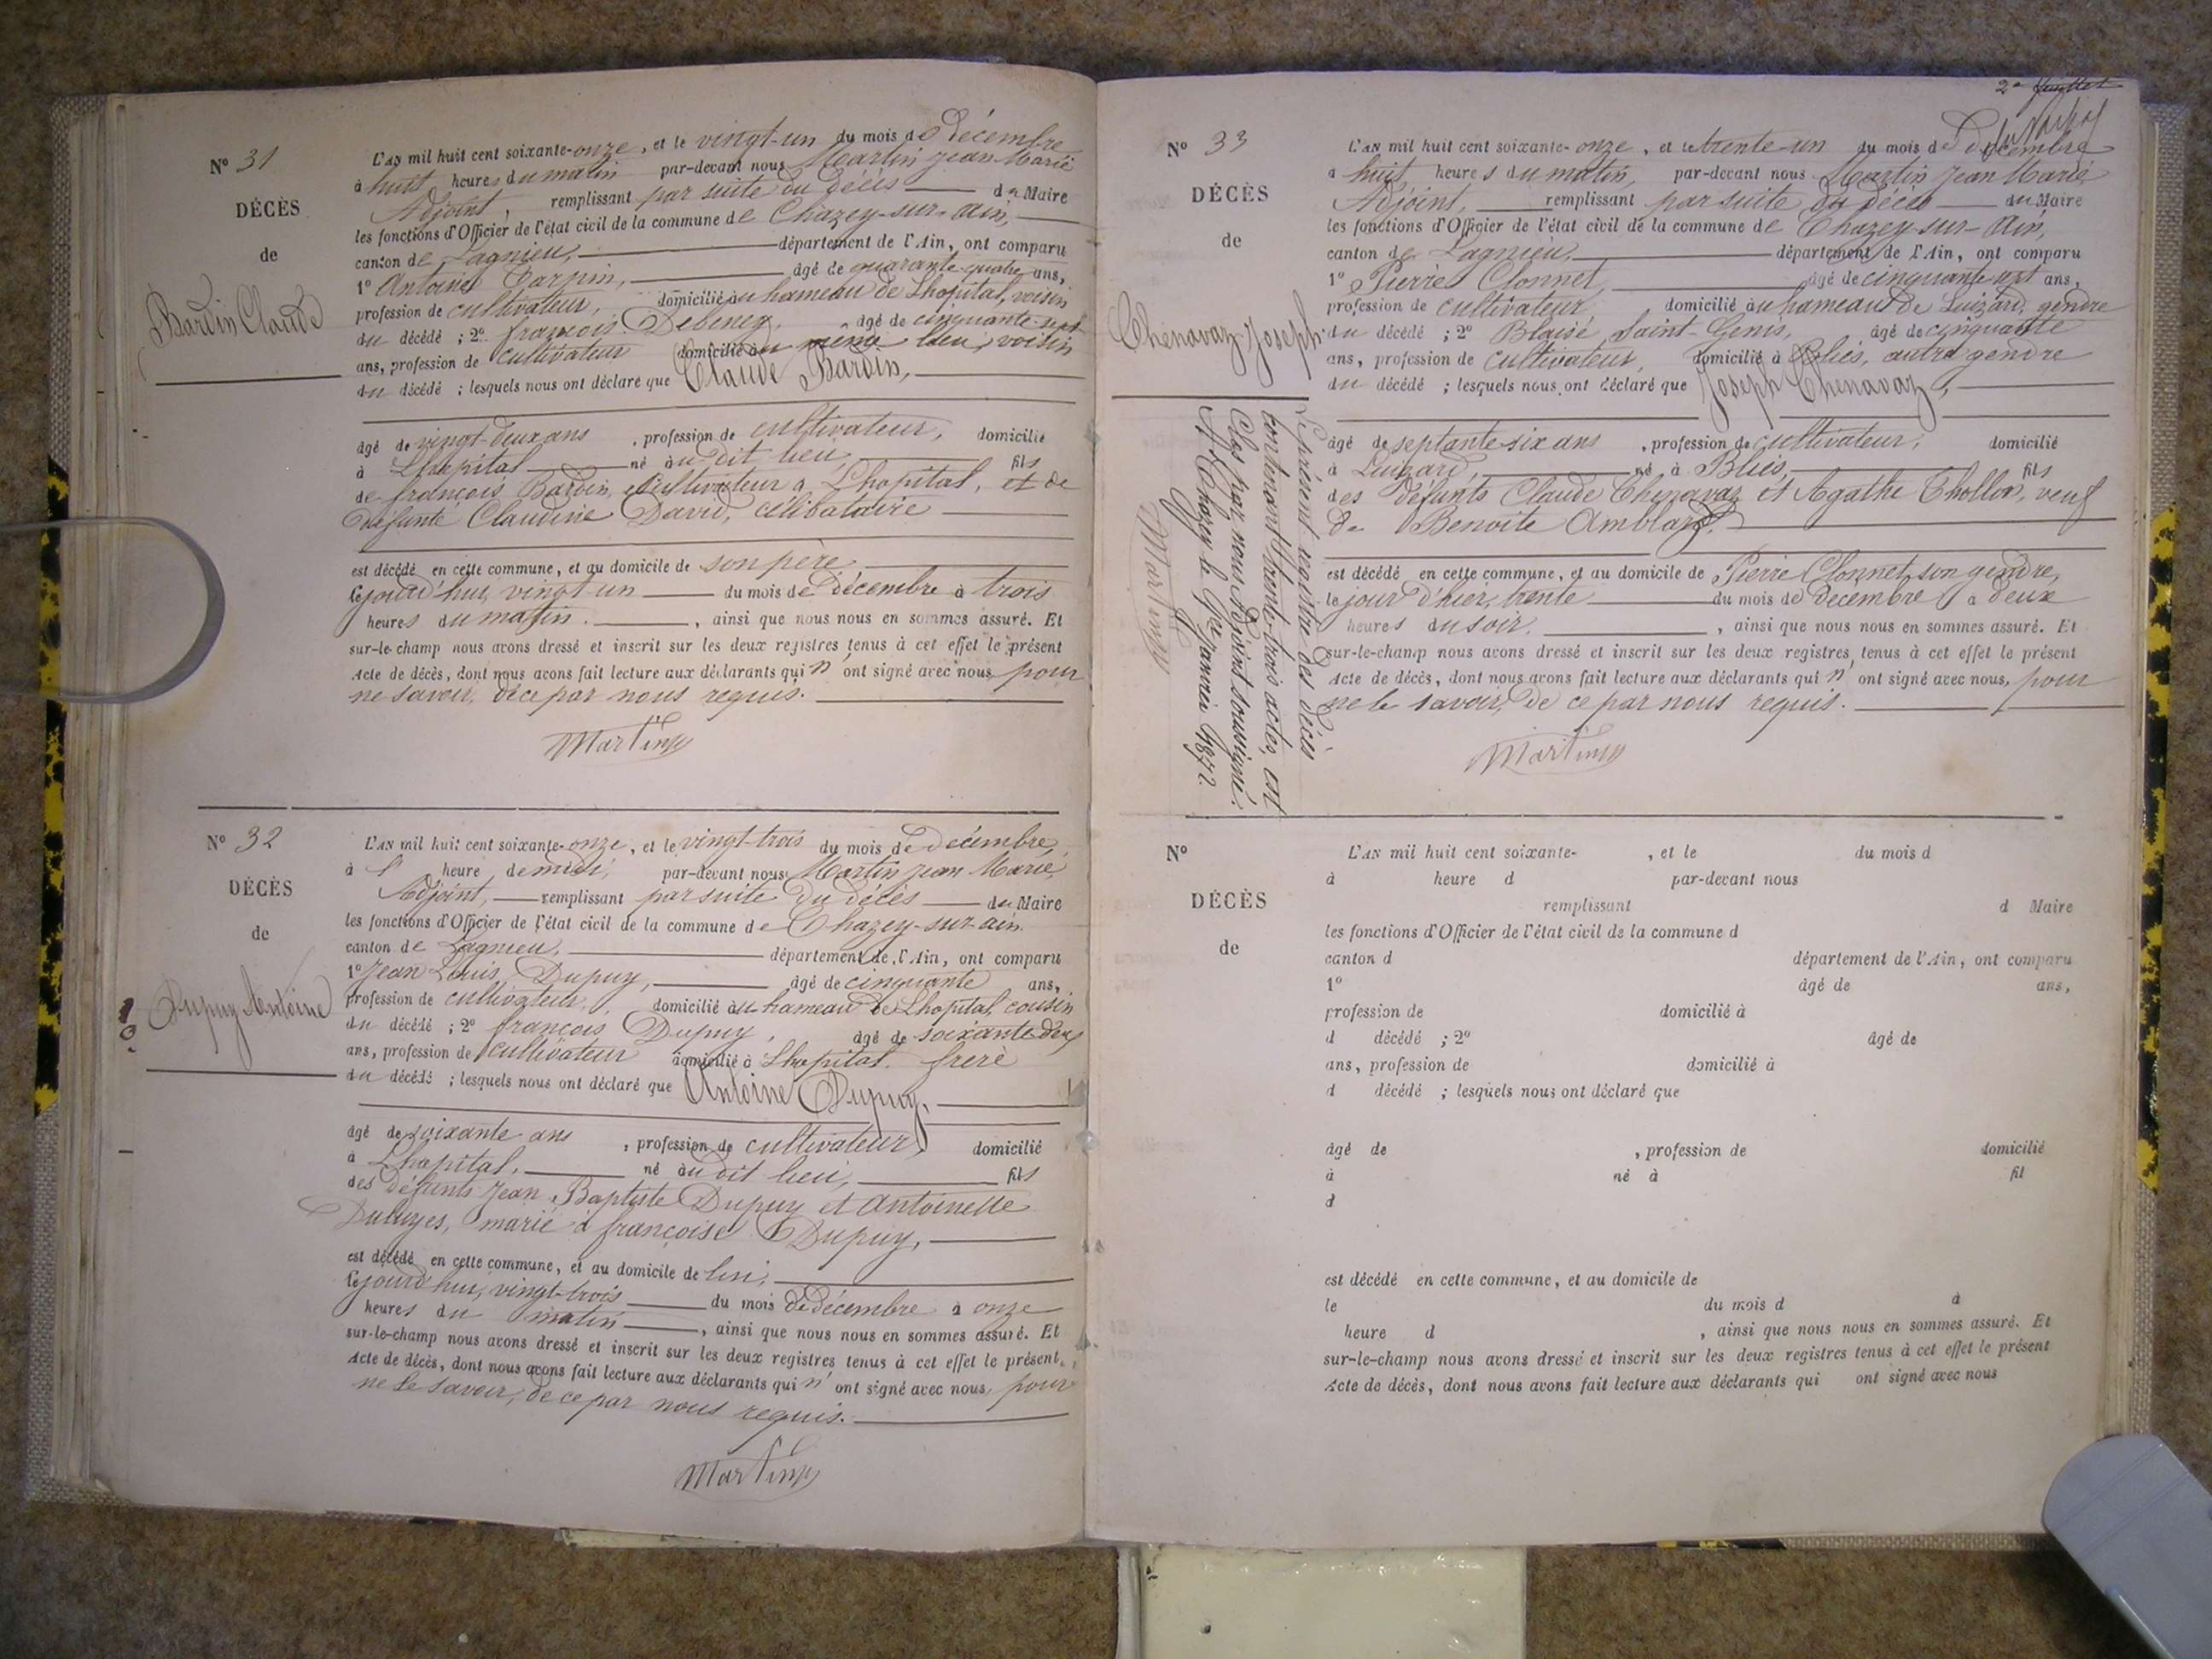 N° 31
DÉCÈS
de
Bardin Claude
L'AN mil huit cent soixante-onze, et le vingt-un du mois de Décembre
à huit heures du matin par-devant nous Martin Jean Marie
Adjoint, remplissant par suite du décès du Maire
les fonctions d'Officier de l'état civil de la commune de Chazey-sur-Ain,
canton de Lagnieu, département de l'Ain, ont comparu
1° Antoine Carpin, âgé de quarante-quatre ans,
profession de cultivateur, domicilié au hameau de Lhopital, voisin
du décédé ; 2° françois Debeney, âgé de cinquante-sept
ans, profession de cultivateur domicilié au même lieu, voisin
du décédé ; lesquels nous ont déclaré que Claude Bardin,
âgé de vingt-deux ans, profession de cultivateur, domicilié
à Lhopital né au dit lieu, fils
de françois Bardin, cultivateur à Lhopital, et de
défunte Claudine David, célibataire
est décédé en cette commune, et au domicile de son père,
le jourd'hui, vingt-un du mois de Décembre à trois
heures du matin. , ainsi que nous nous en sommes assuré. Et
sur-le-champ nous avons dressé et inscrit sur les deux registres tenus à cet effet le présent
Acte de décès, dont nous avons fait lecture aux déclarants qui n'ont signé avec nous pour
ne savoir, de ce par nous requis.
Martin
N° 32
DÉCÈS
de
Dupuy Antoine
L'AN mil huit cent soixante-onze, et le vingt-trois du mois de Décembre,
à l' heure de midi, par-devant nous Martin Jean Marie,
Adjoint, remplissant par suite du décès du Maire
les fonctions d'Officier de l'état civil de la commune de Chazey-sur-ain.
canton de Lagnieu, département de l'Ain, ont comparu
1° Jean Louis Dupuy, âgé de cinquante ans,
profession de cultivateur, domicilié au hameau de Lhopital, cousin
du décédé ; 2° françois Dupuy, âgé de soixante deux
ans, profession de cultivateur domicilié à Lhopital. frère
du décédé ; lesquels nous ont déclaré que Antoine Dupuy,
âgé de soixante ans, profession de cultivateur, domicilié
à Lhopital, né au dit lieu, fils
des défunts Jean Baptiste Dupuy et Antoinette
marié à françoise Dupuy,
est décédé en cette commune, et au domicile de lui,
le jourd'hui, vingt-trois du mois de Décembre à onze
heures du matin , ainsi que nous nous en sommes assuré. Et
sur-le-champ nous avons dressé et inscrit sur les deux registres tenus à cet effet le présent
Acte de décès, dont nous avons fait lecture aux déclarants qui n'ont signé avec nous, pour
ne le savoir, de ce par nous requis.
Martin
2e feuillet
N° 33
DÉCÈS
de
Chenavaz Joseph
L'AN mil huit cent soixante-onze, et le trente-un du mois de Décembre
à huit heures du matin, par-devant nous Martin Jean Marie,
Adjoint, remplissant par suite du décès du Maire
les fonctions d'Officier de l'état civil de la commune de Chazey-sur-Ain,
canton de Lagnieu, département de l'Ain, ont comparu
1° Pierre Clonnet, âgé de cinquante-sept ans,
profession de cultivateur, domicilié au hameau de Luizard, gendre
du décédé ; 2° Blaise Saint-Genis, âgé de cinquante
ans, profession de cultivateur, domicilié à Bliés, autre gendre
du décédé ; lesquels nous ont déclaré que Joseph Chenavaz,
âgé de septante-six ans, profession de cultivateur, domicilié
à Luizard, né à Bliés, fils
des défunts Claude Chenavaz et Agathe Thollon, veuf
de Benoite Amblard,
est décédé en cette commune, et au domicile de Pierre Clonnet, son gendre,
le jour d'hier, trente du mois de Décembre à deux
heures du soir. , ainsi que nous nous en sommes assuré. Et
sur-le-champ nous avons dressé et inscrit sur les deux registres tenus à cet effet le présent
Acte de décès, dont nous avons fait lecture aux déclarants qui n'ont signé avec nous, pour
ne le savoir, de ce par nous requis.
Martin
Le présent registre des décès
contenant trente-trois actes, est
Clos par nous Adjoint soussigné.
A Chazey le 1er Janvier 1872.
Martin
N°
DÉCÈS
de
L'AN mil huit cent soixante- , et le du mois d
à heure d par-devant nous
remplissant d Maire
les fonctions d'Officier de l'état civil de la commune d
canton d département de l'Ain, ont comparu
1° âgé de ans,
profession de domicilié à
d décédé ; 2° âgé de
ans, profession de domicilié à
d décédé ; lesquels nous ont déclaré que
âgé de , profession de domicilié
à né à fil
d
est décédé en cette commune, et au domicile de
le du mois d à
heure d , ainsi que nous nous en sommes assuré. Et
sur-le-champ nous avons dressé et inscrit sur les deux registres tenus à cet effet le présent
Acte de décès, dont nous avons fait lecture aux déclarants qui ont signé avec nous